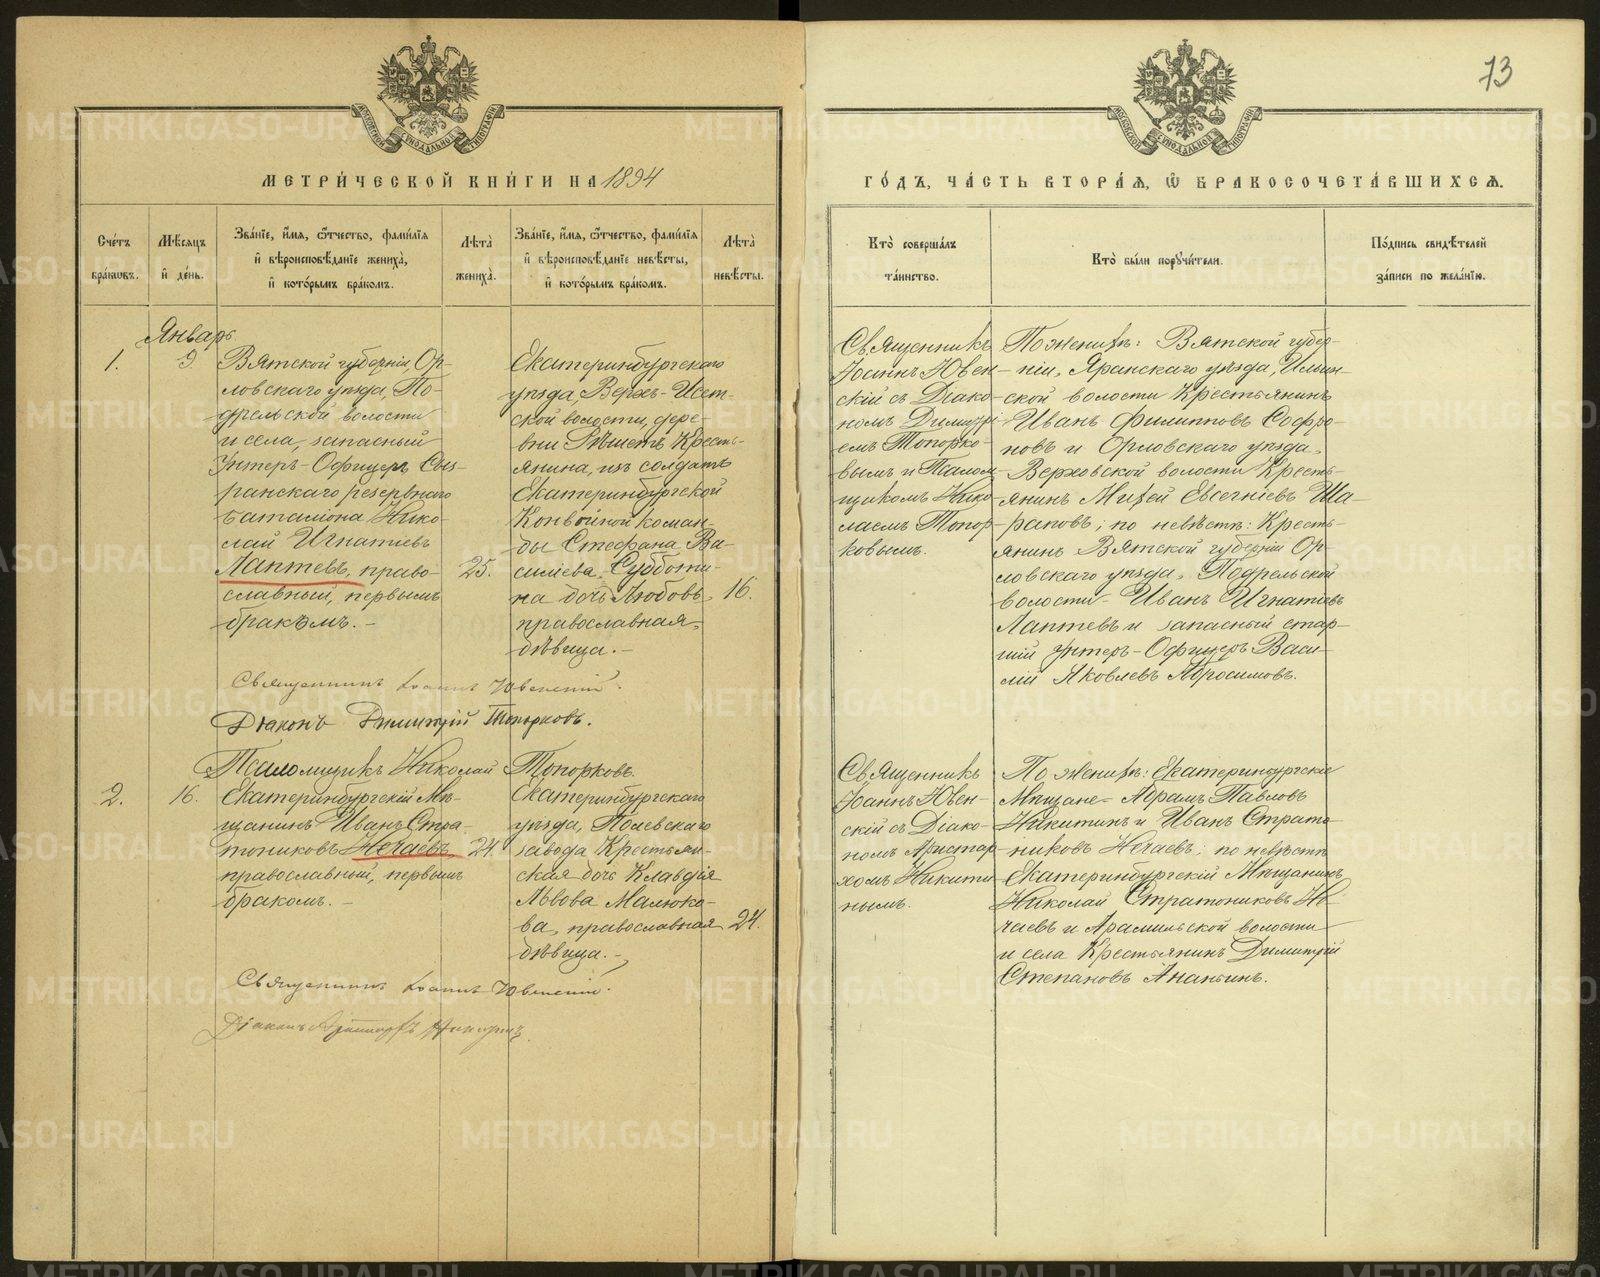 73
МЕТРИ́ЧЕСКОЙ КНИ́ГИ НА 1894
ГО́ДЪ, ЧА́СТЬ ВТОРА́Ѧ, Ѽ БРАКОСОЧЕТА́ВШИХСѦ.
Сче́тъ бра́ковъ.
Мѣ́сѧцъ и҆ де́нь.
Зва́нїе, и҆́мѧ, ѻ҆́тчество, фами́лїѧ
и҆ вѣроисповѣ́данїе жениха̀,
и҆ кото́рымъ бра́комъ.
Лѣ́та̀ жениха̀.
Зва́нїе, и҆́мѧ, ѻ҆́тчество, фами́лїѧ
и҆ вѣроисповѣ́данїе невѣ́сты,
и҆ кото́рымъ бра́комъ.
Лѣ́та̀ невѣ́сты.
Кто̀ соверша́лъ
та́инство.
Кто̀ бы́ли поручи́тели.
По́дпись свидѣ́телей
за́писи по жела́нїю.
Январь
1.
9.
Вятской губерніи, Ор-
ловскаго уѣзда, По-
дрельской волости
и села, запасный
Унтеръ-Офицеръ Сыз-
ранскаго резервнаго
баталіона Нико-
лай Игнатіевъ
Лаптевъ, право-
славный, первымъ
бракомъ. -
25.
Екатеринбургскаго
уѣзда, Верхъ-Исет-
ской волости, дере-
вни Рѣшетъ Кресть-
янина, изъ солдатъ
Екатеринбургской
Конвойной коман-
ды Стефана Ва-
силіева Субботи-
на дочь Любовь,
православная,
дѣвица. -
16.
Священникъ
Іоаннъ Ювен-
скій съ Діако-
номъ Димитрі-
емъ Топорко-
вымъ и Псалом-
щикомъ Нико-
лаемъ Топор-
ковымъ.
По женихѣ: Вятской губер-
ніи, Яранскаго уѣзда, Ильин-
ской волости Крестьянинъ
Иванъ Филипповъ Софро-
новъ и Орловскаго уѣзда,
Верховской волости Кресть-
янинъ Михей Евсегніевъ Ша-
раповъ; по невѣстѣ: Кресть-
янинъ Вятской губерніи Ор-
ловскаго уѣзда, Подрельской
волости Иванъ Игнатіевъ
Лаптевъ и запасный стар-
шій Унтеръ-Офицеръ Васи-
лій Яковлевъ Абросимовъ.
Священникъ Іоаннъ Ювенскій.
Діаконъ Димитрій Топорковъ.
Псаломщикъ Николай Топорковъ.
2.
16.
Екатеринбургскій Мѣ-
щанинъ Иванъ Стра-
тониковъ Нечаевъ
православный, первымъ
бракомъ. -
24.
Екатеринбургскаго
уѣзда, Полевскаго
завода Крестьян-
ская дочь Клавдія
Львова Малюко-
ва, православная
дѣвица. -
24.
Священникъ
Іоаннъ Ювен-
скій съ Діако-
номъ Аристар-
хомъ Никити-
нымъ.
По женихѣ: Екатеринбургскіе
Мѣщане - Абрамъ Павловъ
Никитинъ и Иванъ Страто-
никовъ Нечаевъ; по невѣстѣ
Екатеринбургскій Мѣщанинъ
Николай Стратониковъ Не-
чаевъ и Арамильской волости
и села Крестьянинъ Димитрій
Степановъ Ананьинъ.
Священникъ Іоаннъ Ювенскій.
Діаконъ Аристархъ Никитинъ
METRIKI.GASO-URAL.RU